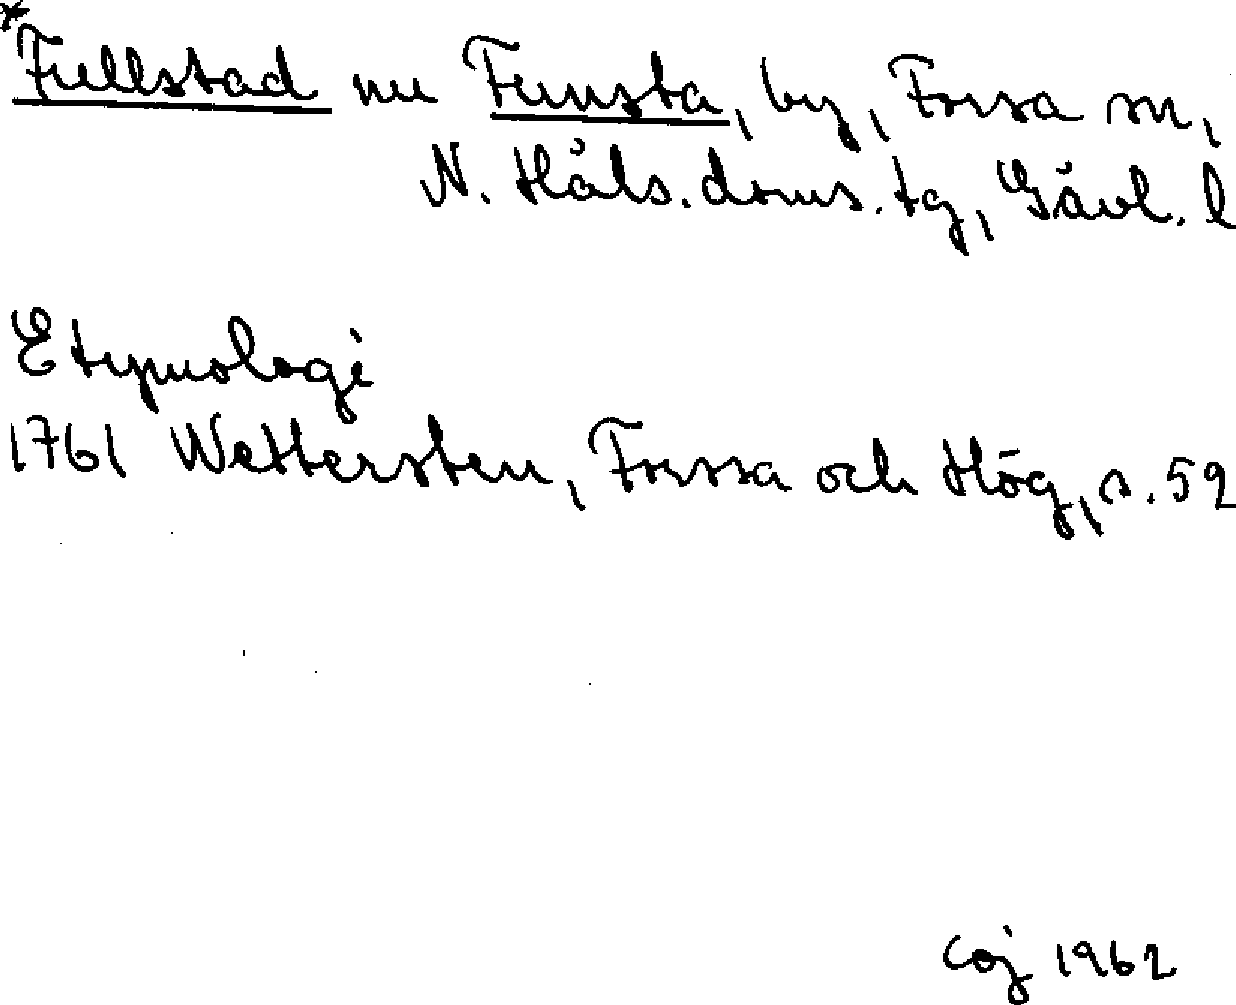 *Fullstad nu Funsta, by, Forsa sn,
N. Häls. doms. tg, Gävl. l
Etymologi
1761 Wettersten, Forssa och Hög, s. 59
Coj 1962